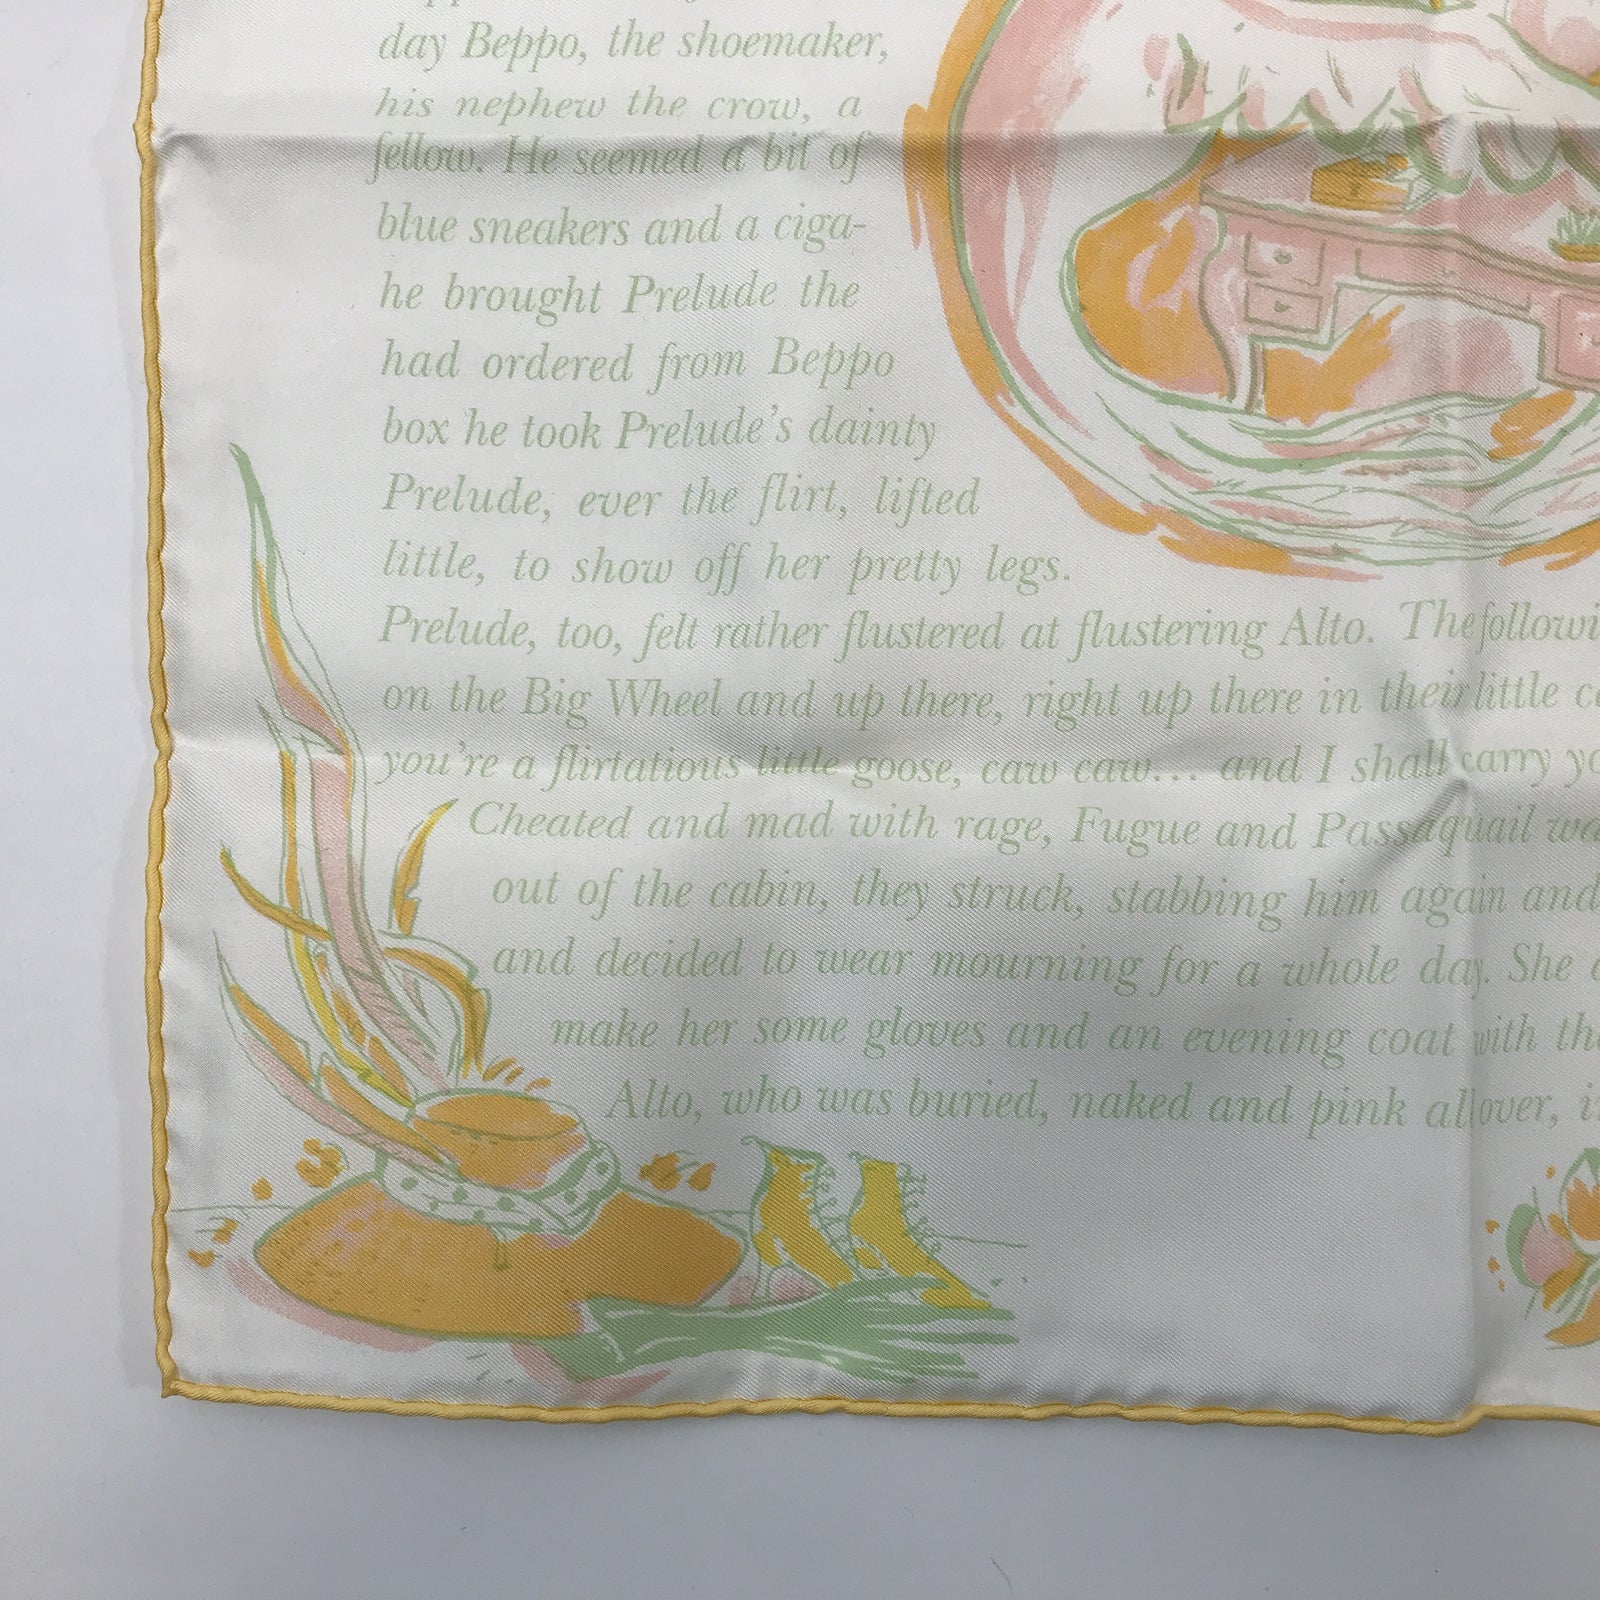 day Beppo, the shoemaker,
his nephew the crow, a
fellow. He seemed a bit of
blue sneakers and a ciga-
he brought Prelude the
had ordered from Beppo
box he took Prelude's dainty
Prelude, ever the flirt, lifted
little, to show off her pretty legs.
Prelude, too, felt rather flustered at flustering Alto. The followi
on the Big Wheel and up there, right up there in their little c
you're a flirtatious little goose, caw caw... and I shall carry yo
Cheated and mad with rage, Fugue and Passaquail wa
out of the cabin, they struck, stabbing him again and
and decided to wear mourning for a whole day. She
make her some gloves and an evening coat with th
Alto, who was buried, naked and pink all over, i